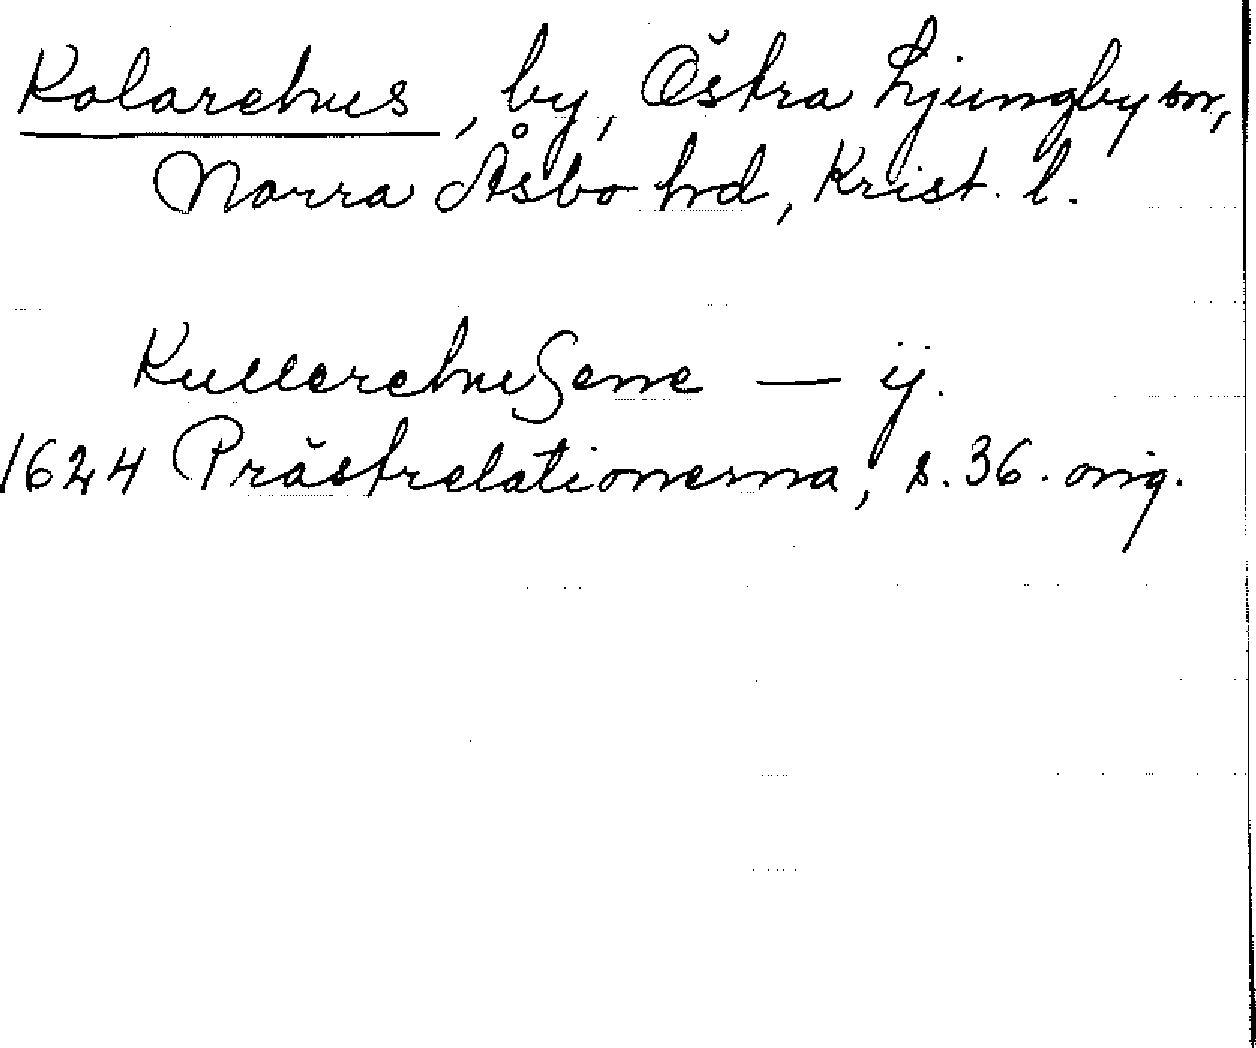 Kolarehus, by, Östra Ljungby sn,
Norra Åsbo hrd, Krist. l.
Kullerehuſenne — ij.
1624 Prästrelationerna, s. 36. orig.